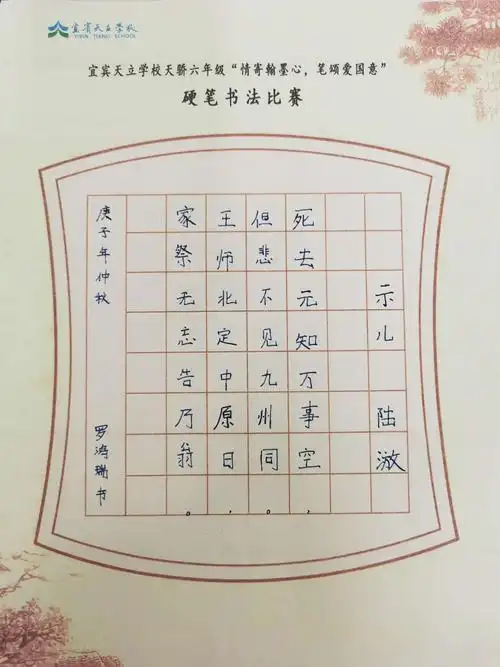 宜宾天立学校
YIBIN TIANLI SCHOOL
宜宾天立学校天骄六年级“情寄翰墨心，笔颂爱国意”
硬笔书法比赛
示儿 陆游
死去元知万事空，
但悲不见九州同。
王师北定中原日，
家祭无忘告乃翁。
庚子年仲秋 罗鸿瑞书